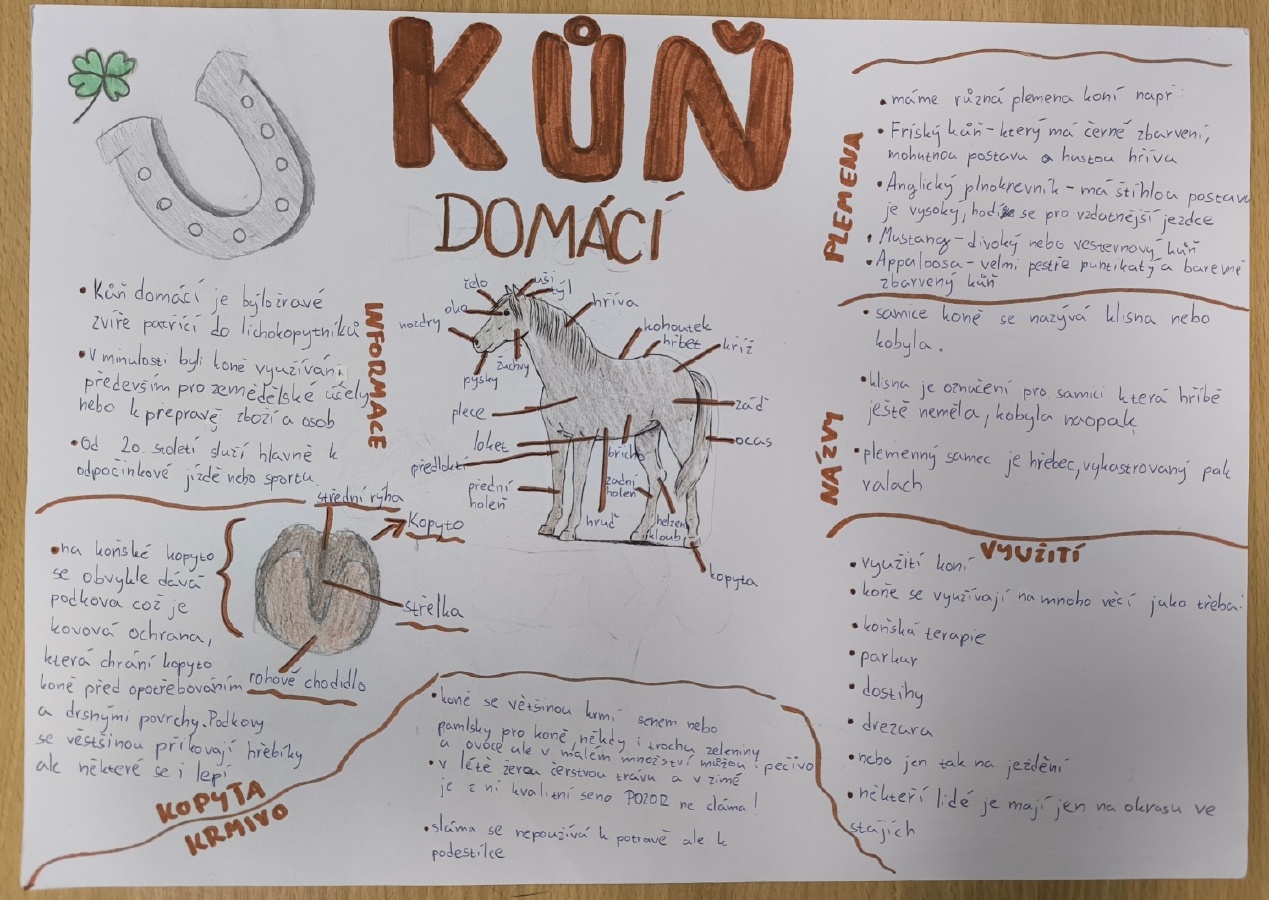 KŮŇ
DOMÁCÍ
INFORMACE
• Kůň domácí je býložravé
zvíře patřící do lichokopytníků
• V minulosti byli koně využíváni
především pro zemědělské účely
nebo k přepravě zboží a osob
• Od 20. století služí hlavně k
odpočinkové jízdě nebo sportu.
čelo
uši
týl
oko
hříva
nozdry
kohoutek
hřbet
kříž
žuchvy
pysky
plece
záď
loket
břicho
ocas
předloktí
přední
holeň
zadní
holeň
hruď
kloub
kopyta
střední rýha
Kopyto
střelka
rohové chodidlo
• na koňské kopyto
se obvykle dává
podkova což je
kovová ochrana,
která chrání kopyto
koně před opotřebováním
a drsnými povrchy. Podkovy
se věstšinou přikovají hřebíky
ale některé se i lepí
KOPYTA
KRMIVO
• koně se většinou krmí senem nebo
pamlsky pro koně, někdy i trochu zeleniny
a ovoce ale v malém množství můžou i pečivo
• v létě žerou čerstvou trávu a v zimě
je z ní kvalitní seno POZOR ne sláma!
• sláma se nepoužívá k potravě ale k
podestílce
PLEMENA
• máme různá plemena koní např:
• Fríský kůň - který má černé zbarvení,
mohutnou postavu a hustou hřívu
• Anglický plnokrevník - má štíhlou postavu
je vysoký, hodí se pro vzdatnější jezdce
• Mustang - divoký nebo vesternový kůň
• Appaloosa - velmi pestře puntikatý a barevně
zbarvený kůň
NÁZVY
• samice koně se nazývá klisna nebo
kobyla.
• klisna je označení pro samici která hříbě
ještě neměla, kobyla naopak
• plemenný samec je hřebec, vykastrovaný pak
valach
VYUŽITÍ
• využití koní
• koně se využívají na mnoho věcí jako třeba:
• koňská terapie
• parkur
• dostihy
• drezura
• nebo jen tak na ježdění
• někteří lidé je mají jen na okrasu ve
stájích